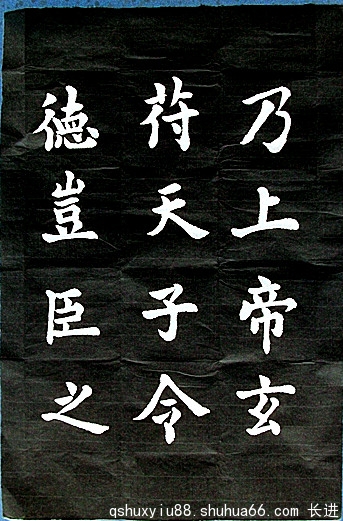 乃上帝玄
苻天子令
德豈臣之
qshuxyiu88.shuhua66.com 长进